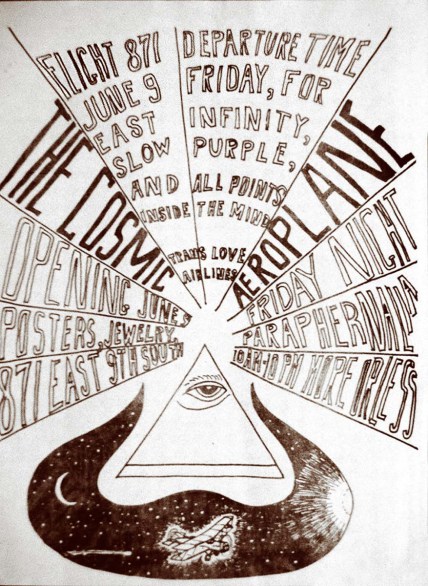 FLIGHT 871 DEPARTURE TIME
JUNE 9 FRIDAY, FOR
EAST INFINITY,
SLOW PURPLE,
AND ALL POINTS
INSIDE THE MIND
TRANS LOVE
AIRLINES
THE COSMIC
AEROPLANE
OPENING JUNE 9
FRIDAY NIGHT
POSTERS, JEWELRY,
PARAPHERNALIA
871 EAST 9TH SOUTH
10 AM-10 PM MORE OR LESS